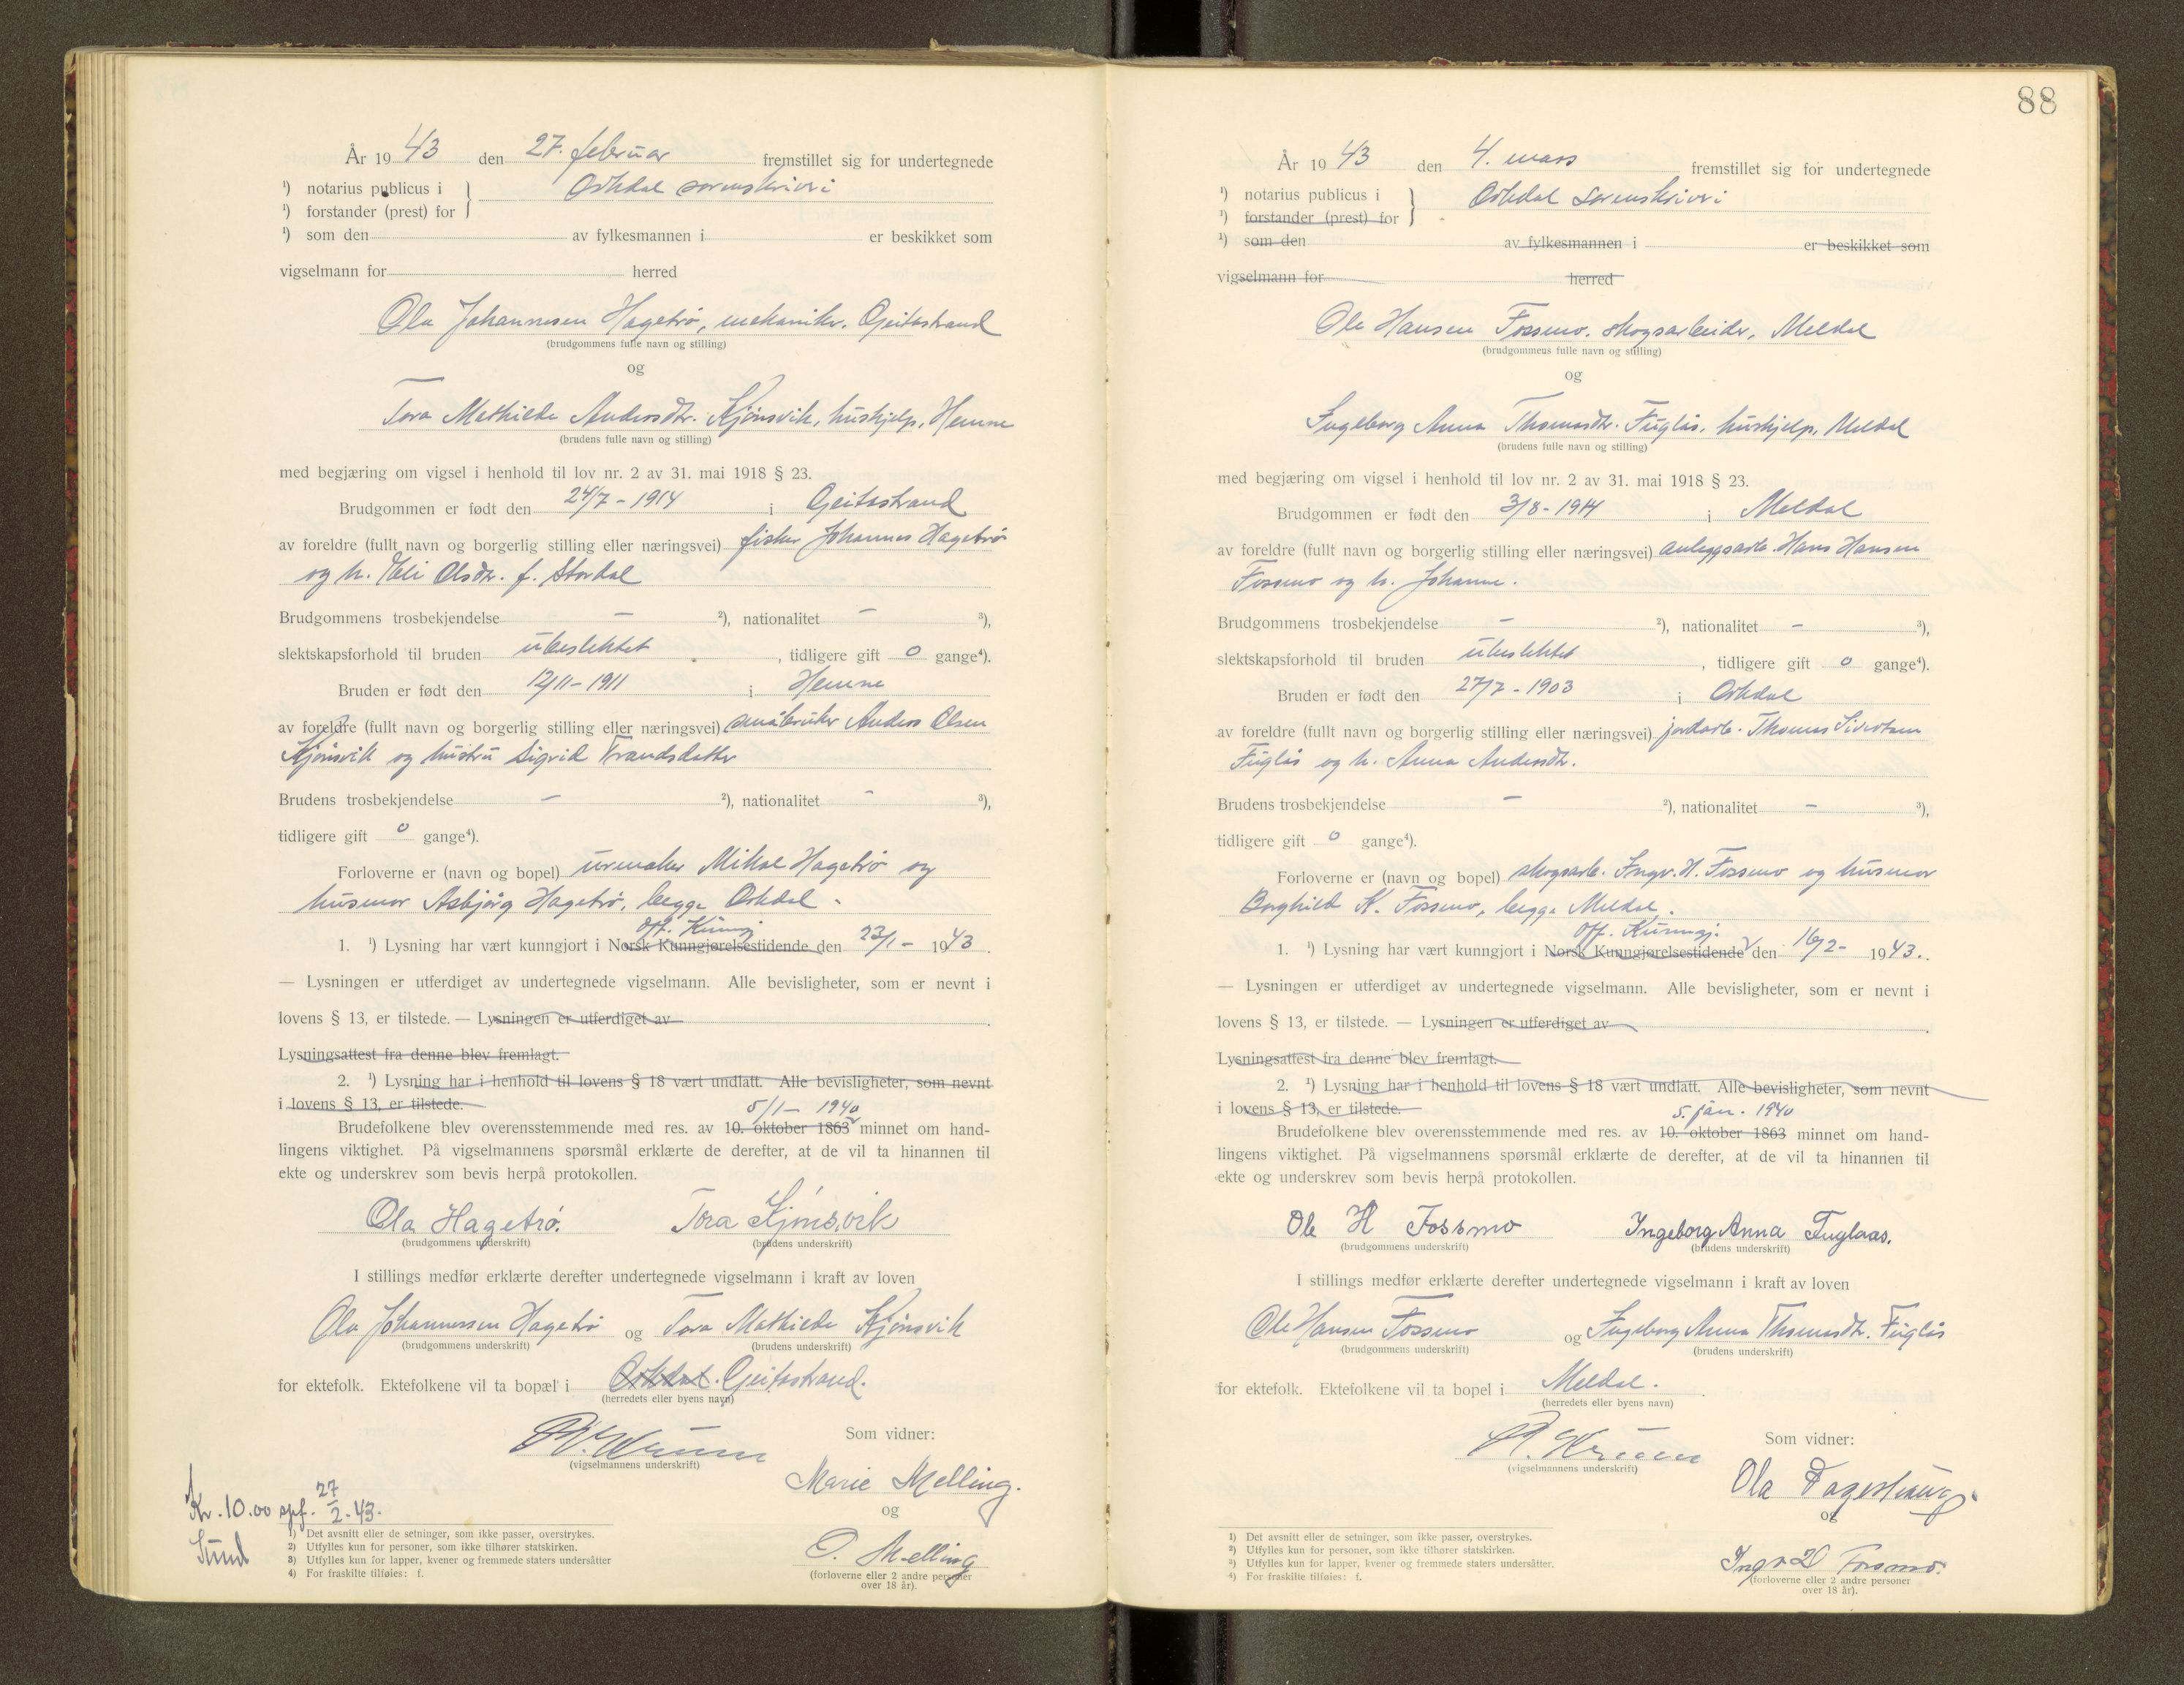 År 1943 den 27. februar fremstillet sig for undertegnede
¹) notarius publicus i } Orkdal sorenskriveri
¹) forstander (prest) for
¹) som den av fylkesmannen i er beskikket som
vigselmann for herred
Ola Johannesen Hagetrø, mekaniker, Geitastrand
(brudgommens fulle navn og stilling)
og
Tora Mathilde Andersdtr. Kjønsvik, hushjelp, Hemne
(brudens fulle navn og stilling)
med begjæring om vigsel i henhold til lov nr. 2 av 31. mai 1918 § 23.
Brudgommen er født den 24/7 - 1914 i Geitastrand
av foreldre (fullt navn og borgerlig stilling eller næringsvei) fisker Johannes Hagetrø
og h. Eli Olsdtr. f. Stordal
Brudgommens trosbekjendelse - ²), nationalitet - ³),
slektskapsforhold til bruden ubeslektet, tidligere gift 0 gange⁴).
Bruden er født den 12/11 - 1911 i Hemne
av foreldre (fullt navn og borgerlig stilling eller næringsvei) småbruker Anders Olsen
Kjønsvik og hustru Sigrid Trondsdatter
Brudens trosbekjendelse - ²), nationalitet - ³),
tidligere gift 0 gange⁴).
Forloverne er (navn og bopel) urmaker Mikal Hagetrø og
husmor Asbjørg Hagetrø, begge Orkdal -
off. Kunngj
1. ¹) Lysning har vært kunngjort i Norsk Kunngjørelsestidende den 23/1 - 1943.
— Lysningen er utferdiget av undertegnede vigselmann. Alle bevisligheter, som er nevnt i
lovens § 13, er tilstede. — Lysningen er utferdiget av
Lysningsattest fra denne blev fremlagt.
2. ¹) Lysning har i henhold til lovens § 18 vært undlatt. Alle bevisligheter, som nevnt
i lovens § 13, er tilstede.
5/1 - 1940
Brudefolkene blev overensstemmende med res. av 10. oktober 1863 minnet om hand-
lingens viktighet. På vigselmannens spørsmål erklærte de derefter, at de vil ta hinannen til
ekte og underskrev som bevis herpå protokollen.
Ola Hagetrø. Tora Kjønsvik
(brudgommens underskrift) (brudens underskrift)
I stillings medfør erklærte derefter undertegnede vigselmann i kraft av loven
Ola Johannessen Hagetrø og Tora Mathilde Kjønsvik
(brudgommens underskrift) (brudens underskrift)
for ektefolk. Ektefolkene vil ta bopæl i Orkdal. Geitastrand.
(herredets eller byens navn)
Som vidner:
(vigselmannens underskrift)
Marie Melling.
og
Kr. 10.00 spf. 27/2-43.
O. Melling
(forloverne eller 2 andre personer
over 18 år).
1) Det avsnitt eller de setninger, som ikke passer, overstrykes.
2) Utfylles kun for personer, som ikke tilhører statskirken.
3) Utfylles kun for lapper, kvener og fremmede staters undersåtter
4) For fraskilte tilføies: f.
88
År 1943 den 4. mars fremstillet sig for undertegnede
¹) notarius publicus i } Orkdal sorenskriveri
¹) forstander (prest) for
¹) som den av fylkesmannen i er beskikket som
vigselmann for herred
Ole Hansen Fossmo, skogsarbeider, Meldal
(brudgommens fulle navn og stilling)
og
Ingeborg Anna Thomasdtr. Fuglås, hushjelp, Meldal
(brudens fulle navn og stilling)
med begjæring om vigsel i henhold til lov nr. 2 av 31. mai 1918 § 23.
Brudgommen er født den 3/8 - 1914 i Meldal
av foreldre (fullt navn og borgerlig stilling eller næringsvei) anleggsarb. Hans Hansen
Fossmo og h. Johanne.
Brudgommens trosbekjendelse - ²), nationalitet - ³),
slektskapsforhold til bruden ubeslektet, tidligere gift 0 gange⁴).
Bruden er født den 27/7 - 1903 i Orkdal
av foreldre (fullt navn og borgerlig stilling eller næringsvei) jordarb. Thomas Sivertsen
Fuglås og h. Anna Andersdtr.
Brudens trosbekjendelse - ²), nationalitet - ³),
tidligere gift 0 gange⁴).
Forloverne er (navn og bopel) skogsarb. Ingv. H. Fossmo og husmor
Borghild K. Fossmo, begge Meldal.
Off. Kunngj.
1. ¹) Lysning har vært kunngjort i Norsk Kunngjørelsestidende den 16/2 - 1943.
— Lysningen er utferdiget av undertegnede vigselmann. Alle bevisligheter, som er nevnt i
lovens § 13, er tilstede. — Lysningen er utferdiget av
Lysningsattest fra denne blev fremlagt.
2. ¹) Lysning har i henhold til lovens § 18 vært undlatt. Alle bevisligheter, som nevnt
i lovens § 13, er tilstede.
5. jan. 1940
Brudefolkene blev overensstemmende med res. av 10. oktober 1863 minnet om hand-
lingens viktighet. På vigselmannens spørsmål erklærte de derefter, at de vil ta hinannen til
ekte og underskrev som bevis herpå protokollen.
Ole H Fossmo Ingeborg Anna Fuglaas.
(brudgommens underskrift) (brudens underskrift)
I stillings medfør erklærte derefter undertegnede vigselmann i kraft av loven
Ole Hansen Fossmo og Ingeborg Anna Thomasdtr. Fuglås
(brudgommens underskrift) (brudens underskrift)
for ektefolk. Ektefolkene vil ta bopel i Meldal.
(herredets eller byens navn)
Som vidner:
(vigselmannens underskrift)
Ola
og
Ingv H Fossmo.
(forloverne eller 2 andre personer
over 18 år).
1) Det avsnitt eller de setninger, som ikke passer, overstrykes.
2) Utfylles kun for personer, som ikke tilhører statskirken.
3) Utfylles kun for lapper, kvener og fremmede staters undersåtter.
4) For fraskilte tilføies: f.